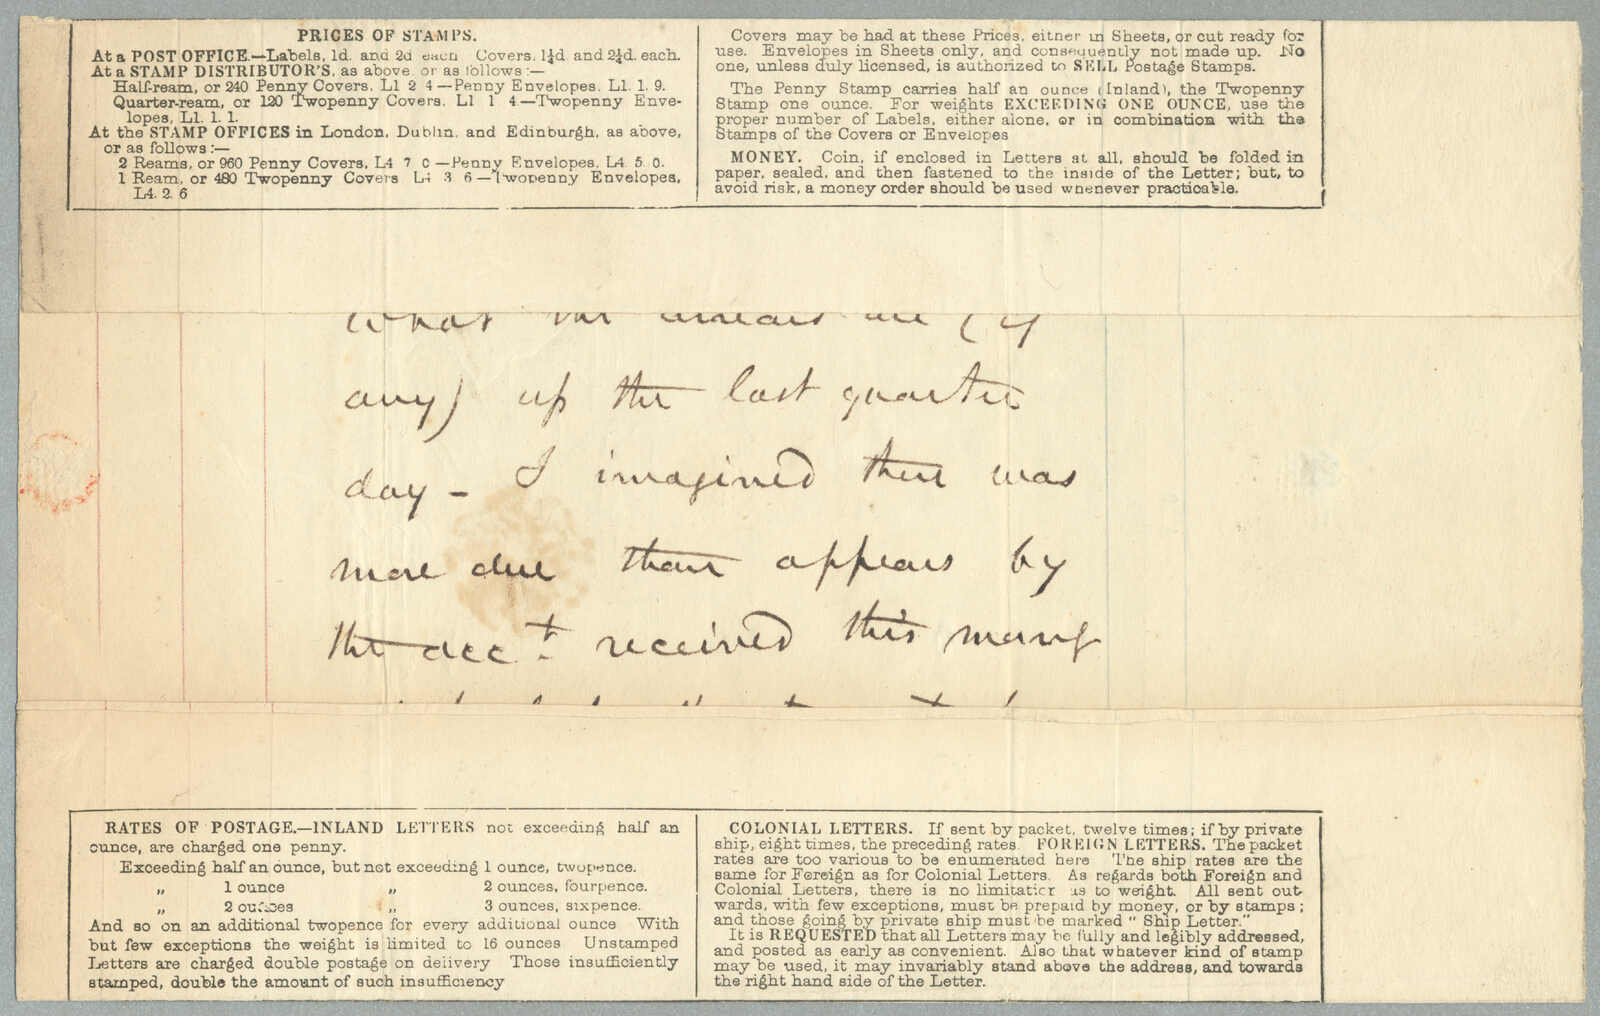 PRICES OF STAMPS.
At a POST OFFICE.—Labels, 1d. and 2d each Covers, 1¼d and 2¼d. each.
At a STAMP DISTRIBUTOR'S, as above or as follows:—
Half-ream, or 240 Penny Covers, L1 2 4—Penny Envelopes, L1. 1. 9.
Quarter-ream, or 120 Twopenny Covers, L1 1 4—Twopenny Enve-
lopes, L1. 1. 1.
At the STAMP OFFICES in London, Dublin, and Edinburgh, as above,
or as follows:—
2 Reams, or 960 Penny Covers, L4 7 0—Penny Envelopes, L4 5 0.
1 Ream, or 480 Twopenny Covers L4 3 6—Twopenny Envelopes,
L4. 2. 6
Covers may be had at these Prices, either in Sheets, or cut ready for
use. Envelopes in Sheets only, and consequently not made up. No
one, unless duly licensed, is authorized to SELL Postage Stamps.
The Penny Stamp carries half an ounce (Inland), the Twopenny
Stamp one ounce. For weights EXCEEDING ONE OUNCE, use the
proper number of Labels, either alone, or in combination with the
Stamps of the Covers or Envelopes
MONEY. Coin, if enclosed in Letters at all, should be folded in
paper, sealed, and then fastened to the inside of the Letter; but, to
avoid risk, a money order should be used whenever practicable.
what the arrears are (if
any) up the last quarter
day - I imagined there was
more due than appears by
the acct. received this morng
RATES OF POSTAGE.—INLAND LETTERS not exceeding half an
ounce, are charged one penny.
Exceeding half an ounce, but not exceeding 1 ounce, twopence.
„ 1 ounce „ 2 ounces, fourpence.
„ 2 ounces „ 3 ounces, sixpence.
And so on an additional twopence for every additional ounce With
but few exceptions the weight is limited to 16 ounces Unstamped
Letters are charged double postage on delivery Those insufficiently
stamped, double the amount of such insufficiency
COLONIAL LETTERS. If sent by packet, twelve times; if by private
ship, eight times, the preceding rates. FOREIGN LETTERS. The packet
rates are too various to be enumerated here The ship rates are the
same for Foreign as for Colonial Letters. As regards both Foreign and
Colonial Letters, there is no limitation as to weight. All sent out-
wards, with few exceptions, must be prepaid by money, or by stamps;
and those going by private ship must be marked "Ship Letter."
It is REQUESTED that all Letters may be fully and legibly addressed,
and posted as early as convenient. Also that whatever kind of stamp
may be used, it may invariably stand above the address, and towards
the right hand side of the Letter.